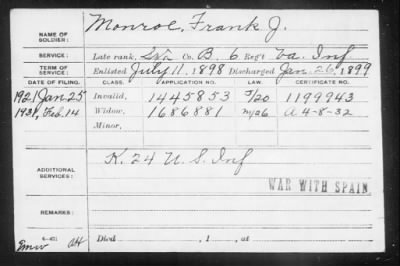 NAME OF SOLDIER: Monroe, Frank J.
SERVICE: Late rank, Co. B, 6 Reg't Va. Inf
TERM OF SERVICE: Enlisted July 11, 1898 Discharged Jan. 26, 1899
DATE OF FILING. CLASS. APPLICATION NO. LAW. CERTIFICATE NO.
1921 Jan. 25 Invalid, 1445853 1199943
1931, Feb. 14 Widow, 1686881 A 4-8-32
Minor,
ADDITIONAL SERVICES: K. 24 U.S. Inf
WAR WITH SPAIN
REMARKS:
Died , 1 , at